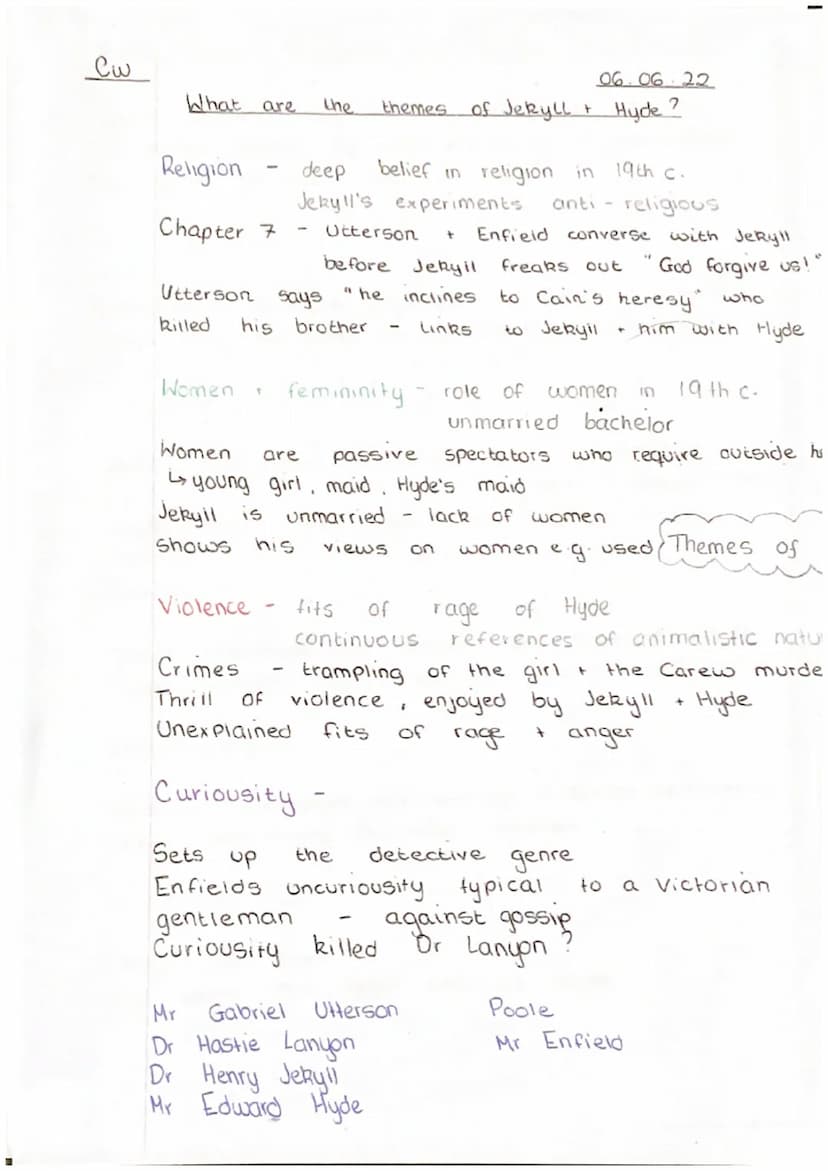 Cw
06.06.22
What are the themes of Jekyll + Hyde?
Religion - deep belief in religion in 19th c.
Jekyll's experiments anti-religious
Chapter 7 - Utterson + Enfield converse with Jekyll
before Jekyll freaks out "God forgive us!"
Utterson says "he inclines to Cain's heresy" who
killed his brother - links to Jekyll + him with Hyde
Women + femininity - role of women in 19th c.
unmarried bachelor
Women are passive spectators who require outside
↳ young girl, maid, Hyde's maid
Jekyll is unmarried - lack of women
shows his views on women e.g. used
Themes of
Violence - fits of rage of Hyde
continuous references of animalistic natu
Crimes - trampling of the girl + the Carew murde
Thrill of violence, enjoyed by Jekyll + Hyde
Unexplained fits of rage + anger
Curiousity -
Sets up the detective genre
Enfields uncuriousity typical to a Victorian
gentleman - against gossip
Curiousity killed Dr Lanyon?
Mr Gabriel Utterson Poole
Dr Hastie Lanyon Mr Enfield
Dr Henry Jekyll
Mr Edward Hyde